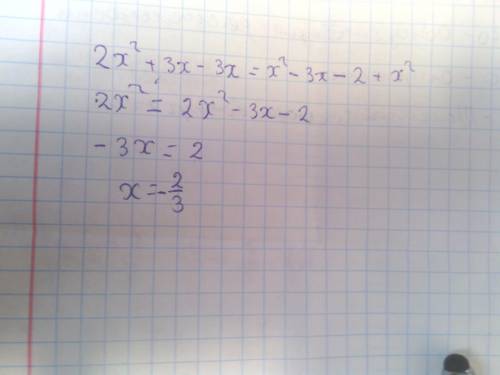 2x² + 3x - 3x = x² - 3x - 2 + x²
2x² = 2x² - 3x - 2
- 3x = 2
x = -2/3